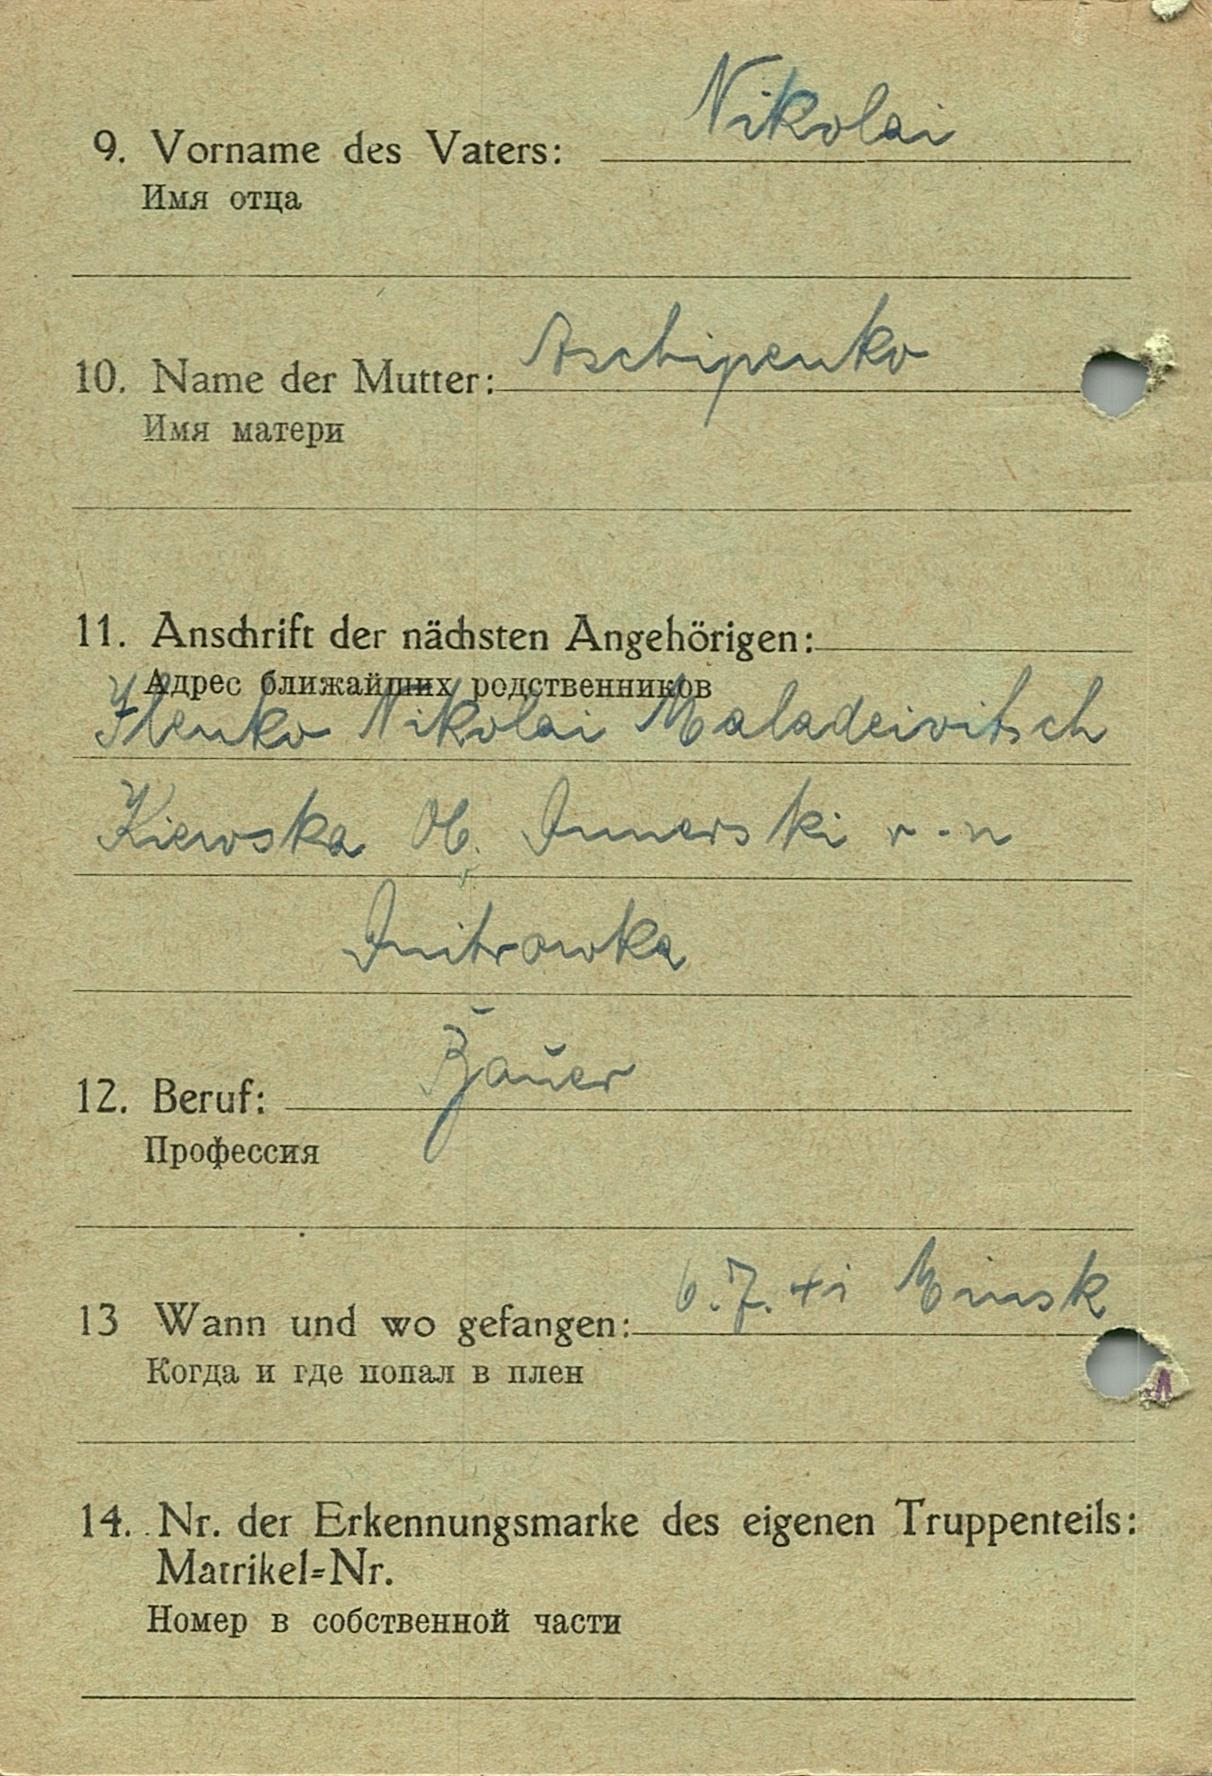 Nikolai
9. Vorname des Vaters:
Имя отца
Aschipenko
10. Name der Mutter:
Имя матери
11. Anschrift der nächsten Angehörigen:
Адрес ближайших родственников
Ilenko Nikolai Maladeivitsch
Kiewska Ob. r-n
Dmitrowka
12. Beruf: Bauer
Профессия
6.7.41 Minsk
13 Wann und wo gefangen:
Когда и где попал в плен
14. Nr. der Erkennungsmarke des eigenen Truppenteils:
Matrikel=Nr.
Номер в собственной части